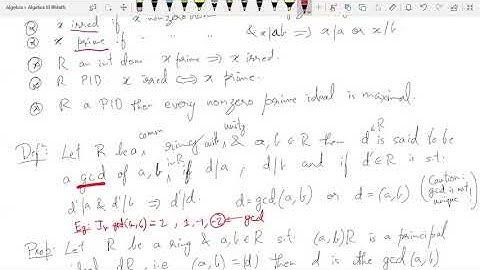 Algebra > Algebra III Bhilath
x irred if x nonzero non
& x | ab ⟹ x | a or x | b
x prime if " " "
R an int dom x prime ⟹ x irred.
R PID x irred ⟺ x prime.
R a PID then every nonzero prime ideal is maximal.
Defn: Let R be a comm ring with unity & a, b ∈ R then d ∈ R is said to be
a gcd of a, b, in R, if d | a, d | b and if d' ∈ R is s.t.
d' | a & d' | b ⟹ d' | d. d = gcd(a, b) or d = (a, b) (Caution: gcd is not unique)
Eg: gcd(a, b) = 2, 1, -1, -2 ← gcd
Prop: Let R be a ring & a, b ∈ R s.t. (a, b)R is a principal
ideal dR, i.e. (a, b) = (d) then d is the gcd(a, b)